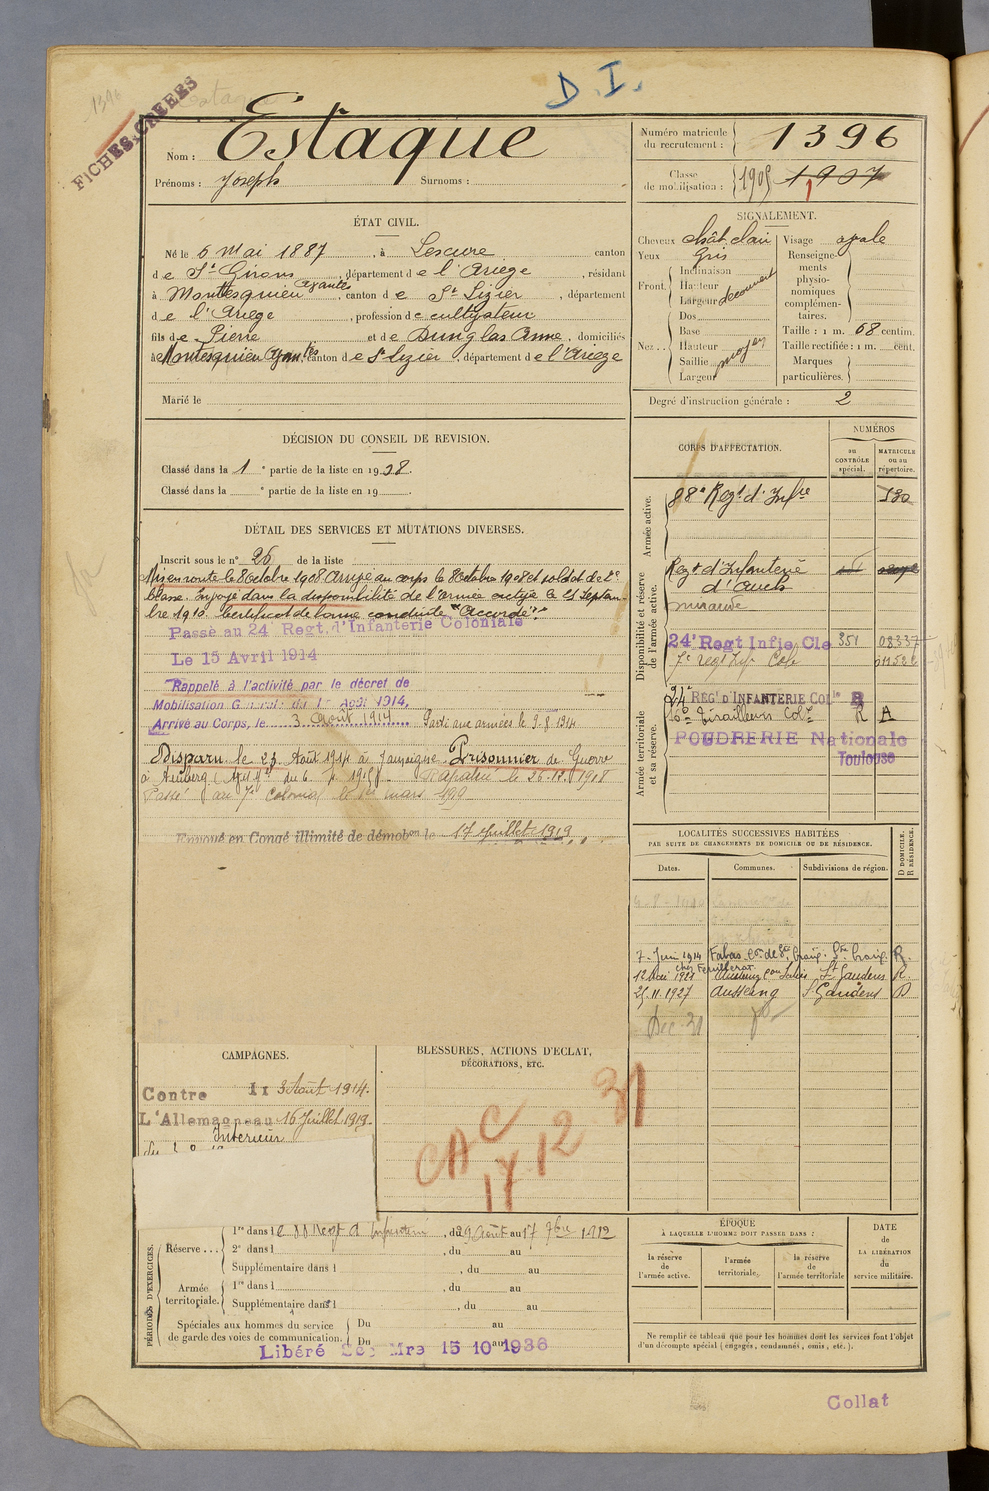 D. I.
1396
Estaque
FICHES CRÉÉES
Nom : Estaque
Prénoms : Joseph Surnoms :
Numéro matricule du recrutement : 1396
Classe de mobilisation : 1905 1907
ÉTAT CIVIL.
Né le 6 Mai 1887, à Lescure canton
de St Girons, département de l'Ariège, résidant
à Montesquieu Avantès, canton de St Lizier, département
de l'Ariège, profession de cultivateur
fils de Pierre et de Dunglas Anne, domiciliés
à Montesquieu Avantès canton de St Lizier, département de l'Ariège
Marié le
SIGNALEMENT.
Cheveux chât clair
Yeux gris
Front. Inclinaison
Hauteur
Largeur découvert
Nez.. Dos
Base
Hauteur moyen
Saillie
Largeur
Visage ovale
Renseignements physionomiques complémentaires.
Taille : 1 m. 68 centim.
Taille rectifiée : 1 m. cent.
Marques particulières.
Degré d'instruction générale : 2
DÉCISION DU CONSEIL DE REVISION.
Classé dans la 1e partie de la liste en 1908.
Classé dans la e partie de la liste en 19 .
DÉTAIL DES SERVICES ET MUTATIONS DIVERSES.
Inscrit sous le n° 26 de la liste
Mis en route le 8 Octobre 1908 Arrivé au corps le 8 Octobre 1908 et soldat de 2e
classe. Envoyé dans la disponibilité de l'armée active le 25 Septem-
bre 1910 Certificat de bonne conduite "Accordé".
Passé au 24 Regt. d'Infanterie Coloniale
Le 15 Avril 1914
Rappelé à l'activité par le décret de
Mobilisation Générale du 1er Août 1914.
Arrivé au Corps, le 3 Août 1914 Parti aux armées le 9.8.1914
Disparu le 23 Août 1914 à Jamoigne. Prisonnier de Guerre
à Amberg Rapatrié le 26.12.1918
Passé au 7e Colonial le 1er mars 1919
Envoyé en Congé illimité de démobon le 17 Juillet 1919
CORPS D'AFFECTATION.
NUMÉROS
au CONTRÔLE spécial.
MATRICULE ou au répertoire.
Armée active.
88e Regt d'Infre
Disponibilité et réserve de l'armée active.
Regt d'Infanterie
d'Auch
24e Regt Infie Cle 351 08337
7e regt Inf Cole
Armée territoriale et sa réserve.
24e REGt D'INFANTERIE COLle R
16e Tirailleurs Col. R A
POUDRERIE Nationale
Toulouse
LOCALITÉS SUCCESSIVES HABITÉES
PAR SUITE DE CHANGEMENTS DE DOMICILE OU DE RÉSIDENCE.
Dates. Communes. Subdivisions de région. D DOMICILE. R RÉSIDENCE.
7 Juin 1914 Fabas con de Ste Croix. Ste Croix. R.
chez Feuillerat
12 Mai 1921 Ausseing con Salies St Gaudens R.
25.11.1927 Ausseing St Gaudens D
Dec 31
CAMPAGNES.
Contre 3 Août 1914.
L'Allemagne au 16 Juillet 1919.
Intérieur
BLESSURES, ACTIONS D'ÉCLAT,
DÉCORATIONS, ETC.
CAC
17 12 31
PÉRIODES D'EXERCICES.
Réserve... 1re dans le 88 Regt d'Infanterie, du 29 Août au 17 7bre 1912
2e dans l , du au
Supplémentaire dans l , du au
Armée territoriale. 1re dans l , du au
Supplémentaire dans l , du au
Spéciales aux hommes du service de garde des voies de communication. Du au
Du au
Libéré Sce Mre 15 10 1936
ÉPOQUE
À LAQUELLE L'HOMME DOIT PASSER DANS :
la réserve de l'armée active. l'armée territoriale. la réserve de l'armée territoriale
DATE de LA LIBÉRATION du service militaire.
Ne remplir ce tableau que pour les hommes dont les services font l'objet
d'un décompte spécial (engagés, condamnés, omis, etc.).
Collat